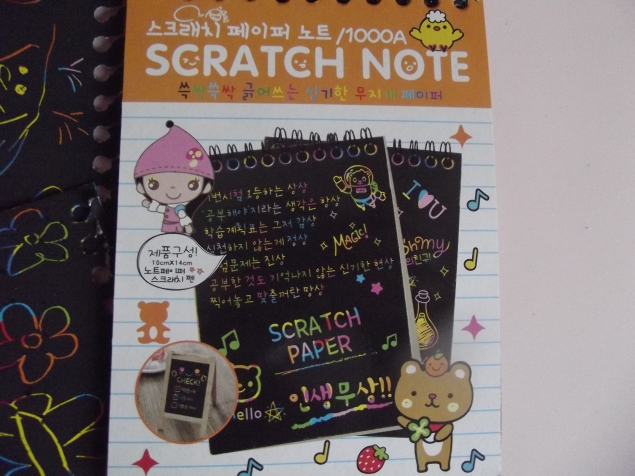 스크래치 페이퍼 노트/1000A
SCRATCH NOTE
쓱싹쓱싹 긁어쓰는 신기한 무지개 페이퍼
1번시험 1등하는 상상
공부해야지라는 생각은 항상
학습계획표는 그저 감상
실천하지 않는게 정상
시험문제는 진상
공부한 것도 기억나지 않는 신기한 현상
찍어놓고 맞출꺼란 망상
MAGIC!
I U
Oh my
제품구성!
10cmX14cm
노트페이퍼
스크래치 펜
SCRATCH
PAPER
CHECK!
Hello
인생무상!!